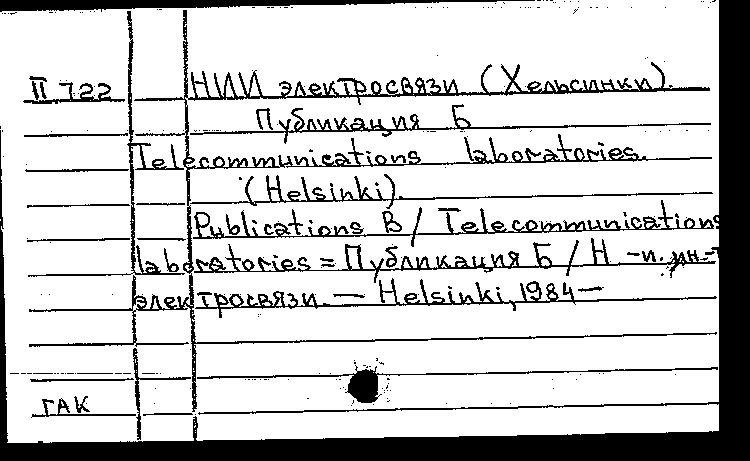 П 722 НИИ электросвязи (Хельсинки).
Публикация Б
Telecommunications laboratories.
(Helsinki).
Publications B / Telecommunications
laboratories = Публикация Б / Н.-и. ин-т
электросвязи. — Helsinki, 1984 —
ГАК